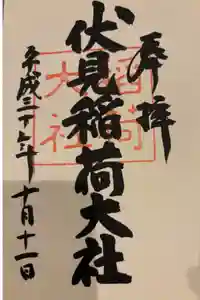 奉拝
伏見稲荷大社
稲荷
大社
平成三十年十月十一日